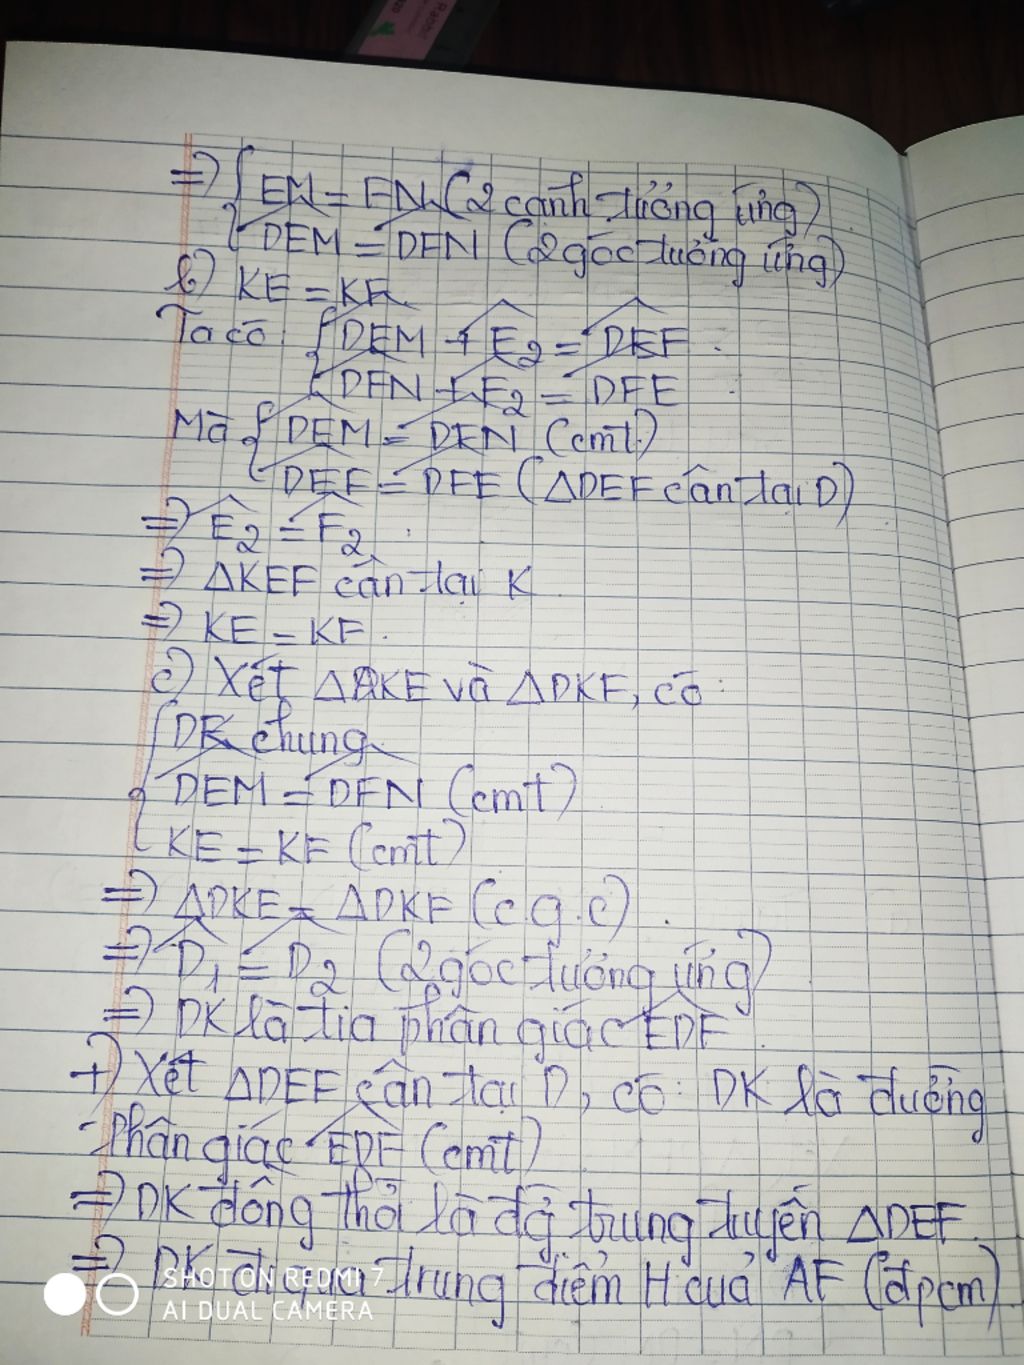 => { EM = FN (2 cạnh tương ứng)
DEM = DFN (2 góc tương ứng)
b) KE = KF
Ta có: { DEM + E2 = DEF
DFN + F2 = DFE
Mà { DEM = DFN (cmt)
DEF = DFE (ΔDEF cân tại D)
=> E2 = F2
=> ΔKEF cân tại K
=> KE = KF.
c) Xét ΔDKE và ΔDKF, có:
{ DK chung
DEM = DFN (cmt)
KE = KF (cmt)
=> ΔDKE = ΔDKF (c.g.c).
=> D1 = D2 (2 góc tương ứng)
=> DK là tia phân giác EDF.
+) Xét ΔDEF cân tại D, có: DK là đường
phân giác EDF (cmt)
=> DK đồng thời là đg trung tuyến ΔDEF.
=> DK đi qua trung điểm H của AF (đpcm)
SHOT ON REDMI 7
AI DUAL CAMERA